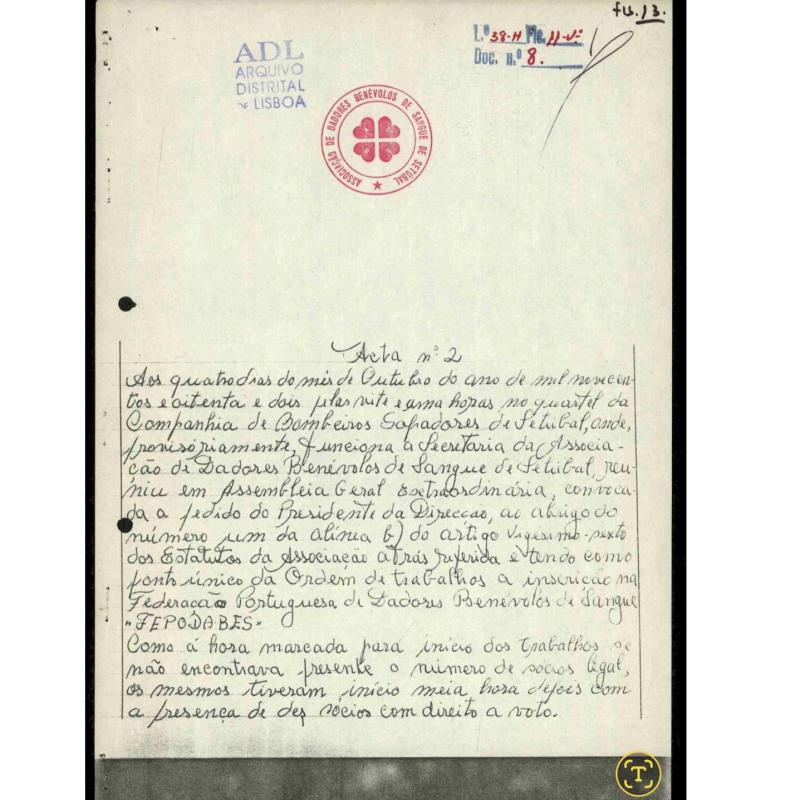 fls. 13.
L.º 38-H Fls. 11-v.
Doc. n.º 8.
ADL
ARQUIVO
DISTRITAL
DE LISBOA
ASSOCIAÇÃO DE DADORES BENÉVOLOS DE SANGUE DE SETÚBAL
Acta nº 2
Aos quatro dias do mês de Outubro do ano de mil novecen-
tos e oitenta e dois pelas vite e uma horas, no quartel da
Companhia de Bombeiros Sapadores de Setúbal, onde,
provisóriamente, funciona a Secretaria da Associa-
ção de Dadores Benévolos de Sangue de Setúbal, reu-
niu em Assembleia Geral Extraordinária, convoca-
da a pedido do Presidente da Direcção, ao abrigo do
número um da alínea b) do artigo vigésimo-sexto
dos Estatutos da Associação atrás referida e tendo como
ponto único da Ordem de trabalhos a inscrição na
Federação Portuguesa de Dadores Benévolos de Sangue
"FEPODABES"
Como á hora marcada para início dos trabalhos se
não encontrava presente o número de sócios legal,
os mesmos tiveram início meia hora depois com
a presença de dez sócios com direito a voto.
T